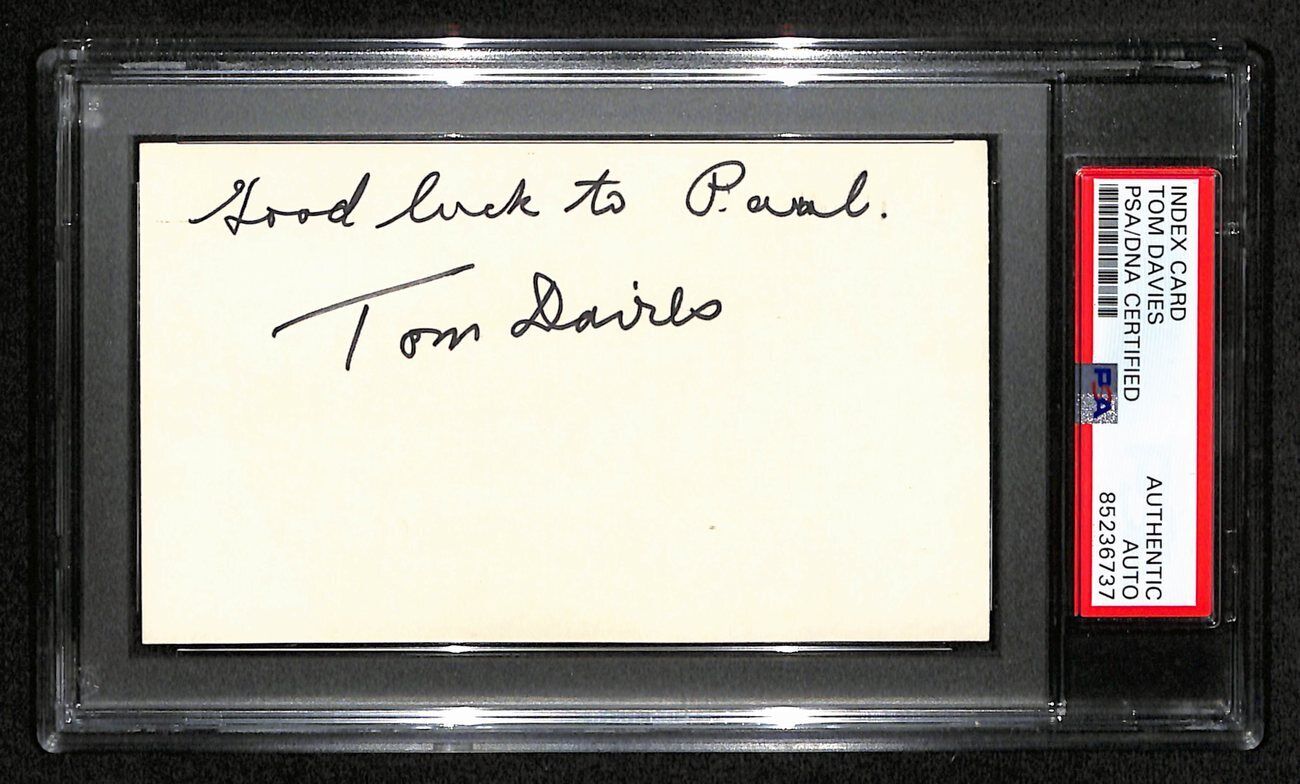 Good luck to Paul.
Tom Davies
INDEX CARD
TOM DAVIES
PSA/DNA CERTIFIED
AUTHENTIC
AUTO
85236737
PSA